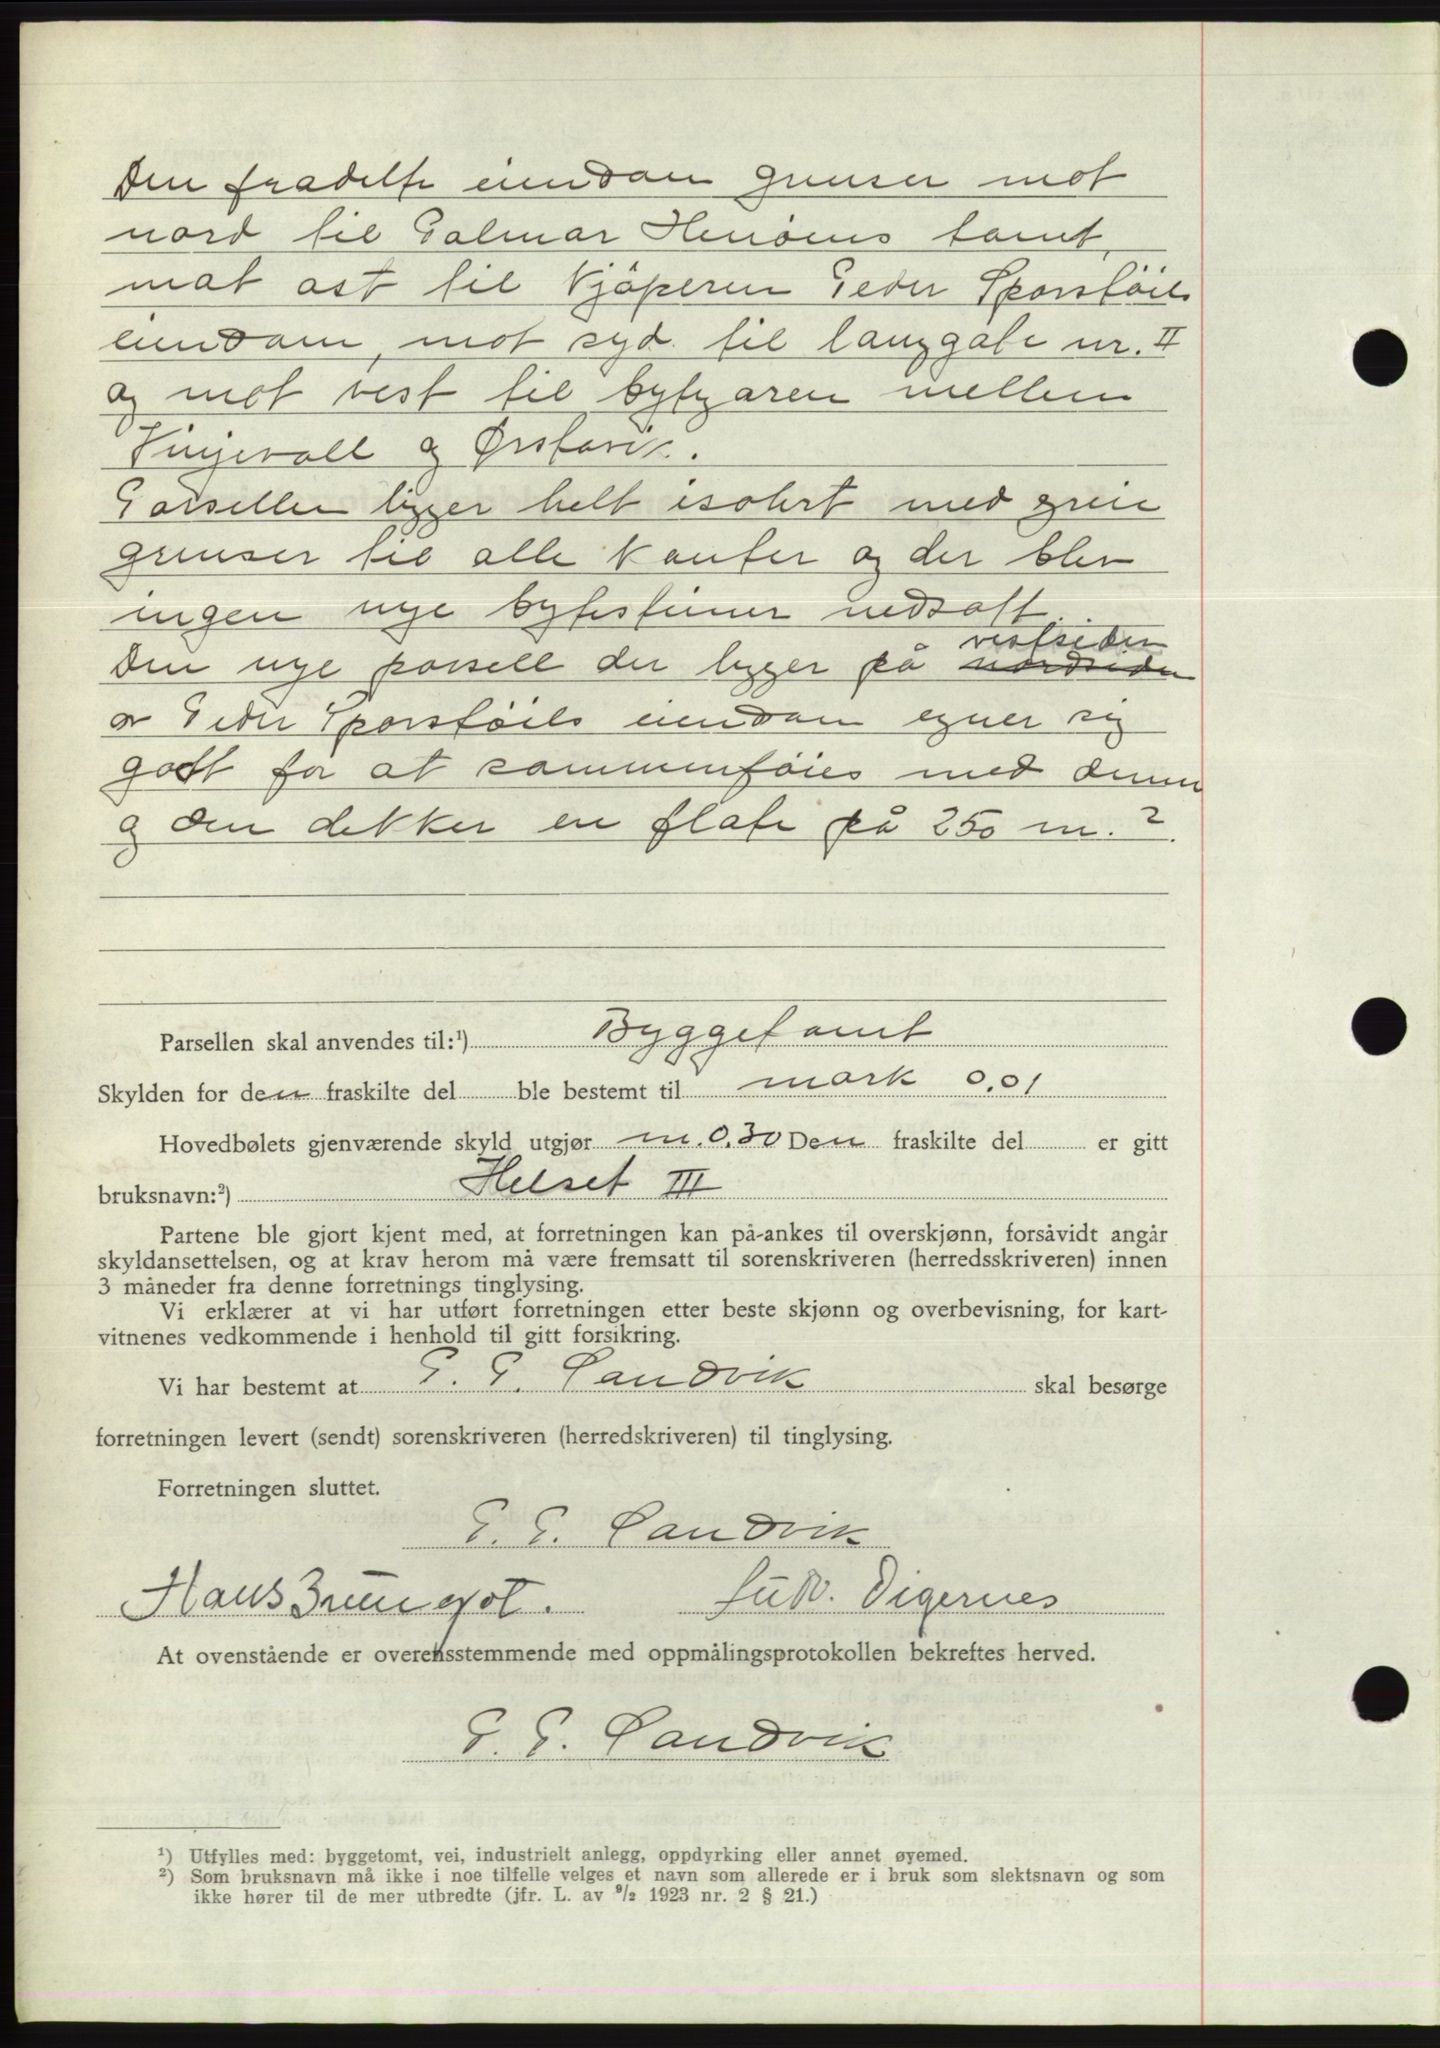 Den fradelte eiendom grenser mot
nord til Palmar Henøens tomt,
mot øst til Kjøperen Peder Sporstøils
eiendom, mot syd til langgate nr. II
og mot vest til bytgaren mellem
Vinjevoll og Ørstavik.
Parsellen ligger helt isolert med greie
grenser til alle kanter og der blev
ingen nye bytesteiner nedsatt.
Den nye parsell der ligger på nordsiden vestsiden
av Peder Sporstøils eiendom egner sig
godt for at sammenføies med denne
og den dekker en flate på 250 m.².
Parsellen skal anvendes til:¹) Byggetomt
Skylden for den fraskilte del ble bestemt til mark 0,01
Hovedbølets gjenværende skyld utgjør m. 0,30 Den fraskilte del er gitt
bruksnavn:²) Helset III
Partene ble gjort kjent med, at forretningen kan på-ankes til overskjønn, forsåvidt angår
skyldansettelsen, og at krav herom må være fremsatt til sorenskriveren (herredsskriveren) innen
3 måneder fra denne forretnings tinglysing.
Vi erklærer at vi har utført forretningen etter beste skjønn og overbevisning, for kart-
vitnenes vedkommende i henhold til gitt forsikring.
Vi har bestemt at P. P. Sandvik skal besørge
forretningen levert (sendt) sorenskriveren (herredskriveren) til tinglysing.
Forretningen sluttet.
P. P. Sandvik
Hans Brungot. Ludv. Digernes
At ovenstående er overensstemmende med oppmålingsprotokollen bekreftes herved.
P. P. Sandvik
¹) Utfylles med: byggetomt, vei, industrielt anlegg, oppdyrking eller annet øyemed.
²) Som bruksnavn må ikke i noe tilfelle velges et navn som allerede er i bruk som slektsnavn og som
ikke hører til de mer utbredte (jfr. L. av ⁹/₂ 1923 nr. 2 § 21.)